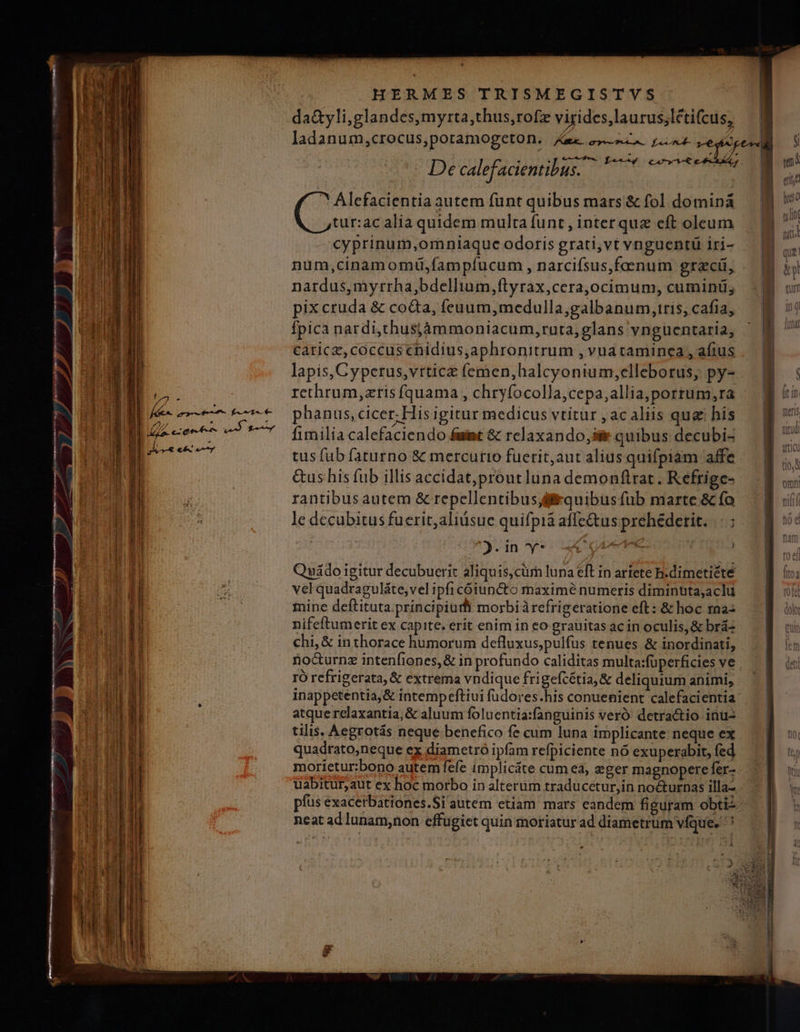 HERMES TRISMEGISTVS
dactyli,glandes,myrta,thus,rosæ virides,laurus,létiscus,
ladanum,crocus,potamogeton.
De calefacientibus.
CAlefacientia autem sunt quibus mars & sol dominá
tur:ac alia quidem multa sunt, inter quæ est oleum
cyprinum,omniaque odoris grati,vt vnguentū iri-
num,cinamomū,sampsucum, narcissus,fœnum græcū,
nardus,myrrha,bdellium,styrax,cera,ocimum, cuminū,
pix cruda & cocta, seuum,medulla,galbanum,iris, casia,
spica nardi,thus,àmmoniacum,ruta,glans vnguentaria,
caricæ,coccus chidius,aphronitrum, vua taminea, asius
lapis,Cyperus,vrticæ semen,halcyonium,elleborus, py-
rethrum,æris squama, chrysocolla,cepa,allia,porrum,ra
phanus, cicer. His igitur medicus vtitur, ac aliis quæ his
similia calefaciendo & relaxando, quibus decubi-
tus sub saturno & mercurio fuerit,aut alius quispiam affe
ctus his sub illis accidat,prout luna demonstrat. Refrige-
rantibus autem & repellentibus, quibus sub marte & so
le decubitus fuerit,aliúsue quispiā affectus prehéderit.
☽. in ♈.
Quádo igitur decubuerit aliquis,cùm luna est in ariete h.dimetiété
vel quadraguláte,vel ipsi cóiuncto maximé numeris diminuta,aclu
mine destituta principiurh morbi à refrigeratione est: & hoc ma-
nifestum erit ex capite. erit enim in eo grauitas ac in oculis, & brá-
chi, & in thorace humorum defluxus,pulsus tenues & inordinati,
nocturnæ intensiones, & in profundo caliditas multa:superficies ve
rò refrigerata, & extrema vndique frigescétia, & deliquium animi,
inappetentia, & intempestiui sudores.his conuenient calefacientia
atque relaxantia, & aluum soluentia:sanguinis verò detractio inu-
tilis. Aegrotás neque benefico se cum luna implicante neque ex
quadrato,neque ex diametró ipsam respiciente nó exuperabit, sed
morietur:bono autem sese implicáte cum ea, æger magnopere ser-
uabitur,aut ex hoc morbo in alterum traducetur,in nocturnas illa-
psus exacerbationes.Si autem etiam mars eandem figuram obti-
neat ad lunam,non effugiet quin moriatur ad diametrum vsque.